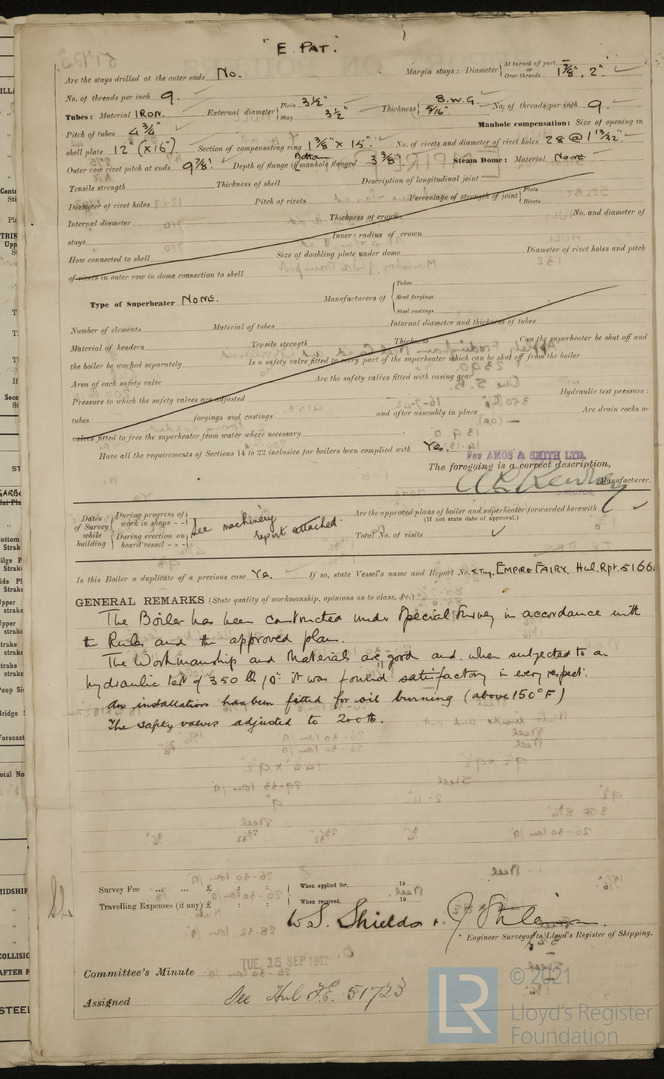 "E. PAT."
Are the stays drilled at the outer ends No. Margin stays: Diameter { At turned off part, or Over threads 1 7/8", 2".
No. of threads per inch 9.
Tubes: Material IRON. External diameter { Plain 3 1/2" Stay 3 1/2" Thickness { 8. W.G. 5/16" No. of threads per inch 9.
Pitch of tubes 4 3/4" Manhole compensation: Size of opening in
shell plate 12" (x16") Section of compensating ring 1 3/8" x 15" No. of rivets and diameter of rivet holes 28 @ 1 13/32".
Outer row rivet pitch at ends 9 7/8" Depth of flange if manhole flanged Bottom 3 3/8" Steam Dome: Material None
Tensile strength Thickness of shell Description of longitudinal joint
Diameter of rivet holes Pitch of rivets Percentage of strength of joint { Plate Rivets
Internal diameter Thickness of crown No. and diameter of
stays Inner radius of crown
How connected to shell Size of doubling plate under dome Diameter of rivet holes and pitch
of rivets in outer row in dome connection to shell
Type of Superheater NONE. Manufacturers of { Tubes Steel forgings Steel castings
Number of elements Material of tubes Internal diameter and thickness of tubes
Material of headers Tensile strength Thickness Can the superheater be shut off and
the boiler be worked separately Is a safety valve fitted to every part of the superheater which can be shut off from the boiler
Area of each safety valve Are the safety valves fitted with easing gear
Pressure to which the safety valves are adjusted Hydraulic test pressure:
tubes forgings and castings and after assembly in place Are drain cocks or
valves fitted to free the superheater from water where necessary
Have all the requirements of Sections 14 to 22 inclusive for boilers been complied with Yes.
For AMOS & SMITH LTD.
The foregoing is a correct description,
Manufacturer.
Dates of Survey while building { During progress of work in shops - - } { During erection on board vessel - - - } See machinery report attached.
Are the approved plans of boiler and superheater forwarded herewith
(If not state date of approval.)
Total No. of visits
Is this Boiler a duplicate of a previous case Yes. If so, state Vessel's name and Report No. S. Tug. EMPIRE FAIRY, Hul. Rpt. 5166
GENERAL REMARKS (State quality of workmanship, opinions as to class, &c.)
The Boiler has been constructed under Special Survey in accordance with
the Rules and the approved plan.
The Workmanship and Materials are good and when subjected to an
hydraulic test of 350 lb/□" it was found satisfactory in every respect.
An installation has been fitted for oil burning (above 150°F)
The safety valves adjusted to 200 lb.
Survey Fee ... ... £ : : When applied for, 19
Travelling Expenses (if any) £ : : When received, 19
W.S. Shields &
Engineer Surveyor to Lloyd's Register of Shipping.
TUE 15 SEP 1942
Committee's Minute
Assigned See Hul F.E. 51723
© 2021
LR
Lloyd's Register
Foundation